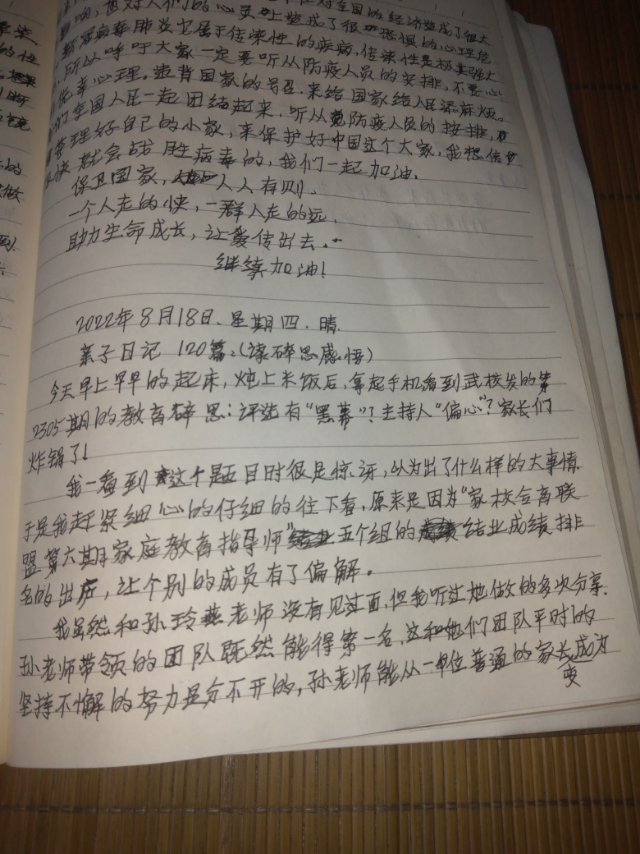 响,也对人们的心灵上造成了很恐惧的心理危
新冠病毒肺炎它属于传染性的疾病,传染性是极其强大
所以呼于大家一定要听从防疫人员的安排,不要心
化幸心理。违背国家的号召,来给国家给人民添麻烦。
们全国人民一起团结起来,听从防疫人员的按排,
管理好自己的小家,来保护好中国这个大家,我想信
快就会战胜病毒的,我们一起加油,
保卫国家,人人有则。
一个人走的快,一群人走的远,
助力生命成长,让爱传出去。
继续加油!
2022年8月18日.星期四.晴.
亲子日记 120篇、(读碎思感悟)
今天早上早早的起床,炖上米饭后,拿起手机看到武校发的第
2305期的教育碎思:评选有“黑幕”?主持人“偏心”?家长们
炸锅了!
我一看到这个题目时很是惊讶,以为出了什么样的大事情
于是我赶紧细心的仔细的往下看,原来是因为“家校合育联
盟第六期家庭教育指导师”五个组的结业成绩排
名的出产,让个别的成员有了偏解。
我虽然和孙玲燕老师没有见过面,但我听过她做的多次分享.
孙老师带领的团队既然能得第一名,这和她们团队平时的
坚持不懈的努力是分不开的,孙老师能从一单位普通的家长成为
变